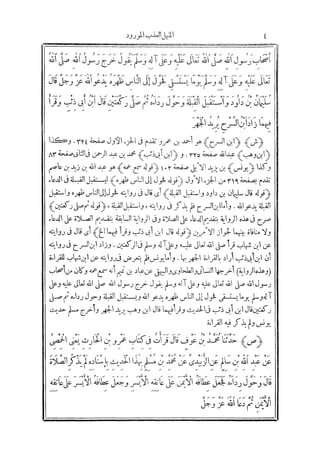 ٤ المنهل العذب المورود
أَصْحَابِ رَسُولِ اللهِ صَلَّى اللهُ تَعَالَى عَلَيْهِ وَعَلَى آلِهِ وَسَلَّمَ يَقُولُ خَرَجَ رَسُولُ اللهِ صَلَّى اللهُ
تَعَالَى عَلَيْهِ وَعَلَى آلِهِ وَسَلَّمَ يَوْمًا يَسْتَسْقِي فَحَوَّلَ إِلَى النَّاسِ ظَهْرَهُ يَدْعُو اللهَ عَزَّ وَجَلَّ قَالَ
سُلَيْمَانُ بْنُ دَاوُدَ وَاسْتَقْبَلَ الْقِبْلَةَ وَحَوَّلَ رِدَاءَهُ ثُمَّ صَلَّى رَكْعَتَيْنِ قَالَ ابْنُ أَبِي ذِئْبٍ وَقَرَأَ
فِيهِمَا زَادَ ابْنُ السَّرْحِ يُرِيدُ الْجَهْرَ
﴿ش﴾ ﴿ابن السرح﴾ هو أحمد بن عمرو تقدم في الجزء الأول صفحة ٣٢٤. وكذا
﴿ابن وهب﴾ عبدالله صفحة ٣٢٥. و ﴿ابن أبى ذئب﴾ محمد بن عبد الرحمن فى الثانى صفحة ٨٣
وكذا ﴿يونس﴾ بن يزيد الأيلى صفحة ١٠٢ ﴿قوله سمع عمه﴾ هو عبد الله بن زيد بن عاصم
تقدم صفحة ٣١٩ من الجزء الأول ﴿قوله فحول إلى الناس ظهره﴾ ليستقبل القبلة فى الدعاء
﴿قوله قال سليمان بن داود واستقبل القبلة﴾ أى قال فى روايته فحول إلى الناس ظهره واستقبل
القبلة يدعو الله. وأما ابن السرح فلم يذكر فى روايته واستقبل القبلة ﴿قوله ثم صلى ركعتين﴾
صرح فى هذه الرواية بتقديم الدعاء على الصلاة وفى الرواية السابقة بتقديم الصلاة على الدعاء.
ولا منافاة بينهما لجواز الأمرين ﴿قوله قال ابن أبى ذئب وقرأ فيهما الخ﴾ أى قال فى روايته
عن ابن شهاب قرأ صلى الله تعالى عليه وعلى آله وسلم فى الركعتين. وزاد ابن السرح فى روايته
أن ابن أبى ذئب أراد بالقراءة الجهر بها. وأما يونس فلم يتعرض فى روايته عن ابن شهاب للقراءة
﴿وهذه الرواية﴾ أخرجها النسائى والطحاوى والبيهقى عن عباد بن تميم أنه سمع عمه وكان من أصحاب
رسول الله صلى الله تعالى عليه وعلى آله وسلم يقول خرج رسول الله صلى الله تعالى عليه وعلى
آله وسلم يوما يستسقى فحول إلى الناس ظهره يدعو الله ويستقبل القبلة وحول رداءه ثم صلى
ركعتين قال ابن أبى ذئب فى الحديث وقرأ فيهما قال ابن وهب يريد الجهر وأخرج مسلم حديث
يونس ولم يذكر فيه القراءة
﴿ص﴾ حَدَّثَنَا مُحَمَّدُ بْنُ عَوْفٍ قَالَ قَرَأْتُ فِي كِتَابِ عَمْرِو بْنِ الْحَارِثِ يَعْنِي الْحِمْصِيَّ
عَنْ عَبْدِ اللهِ بْنِ سَالِمٍ عَنِ الزُّبَيْدِيِّ عَنْ مُحَمَّدِ بْنِ مُسْلِمٍ بِهَذَا الْحَدِيثِ بِإِسْنَادِهِ لَمْ يَذْكُرِ الصَّلَاةَ
قَالَ وَحَوَّلَ رِدَاءَهُ فَجَعَلَ عِطَافَهُ الْأَيْمَنَ عَلَى عَاتِقِهِ الْأَيْسَرِ وَجَعَلَ عِطَافَهُ الْأَيْسَرَ عَلَى عَاتِقِهِ
الْأَيْمَنِ ثُمَّ دَعَا اللهَ عَزَّ وَجَلَّ